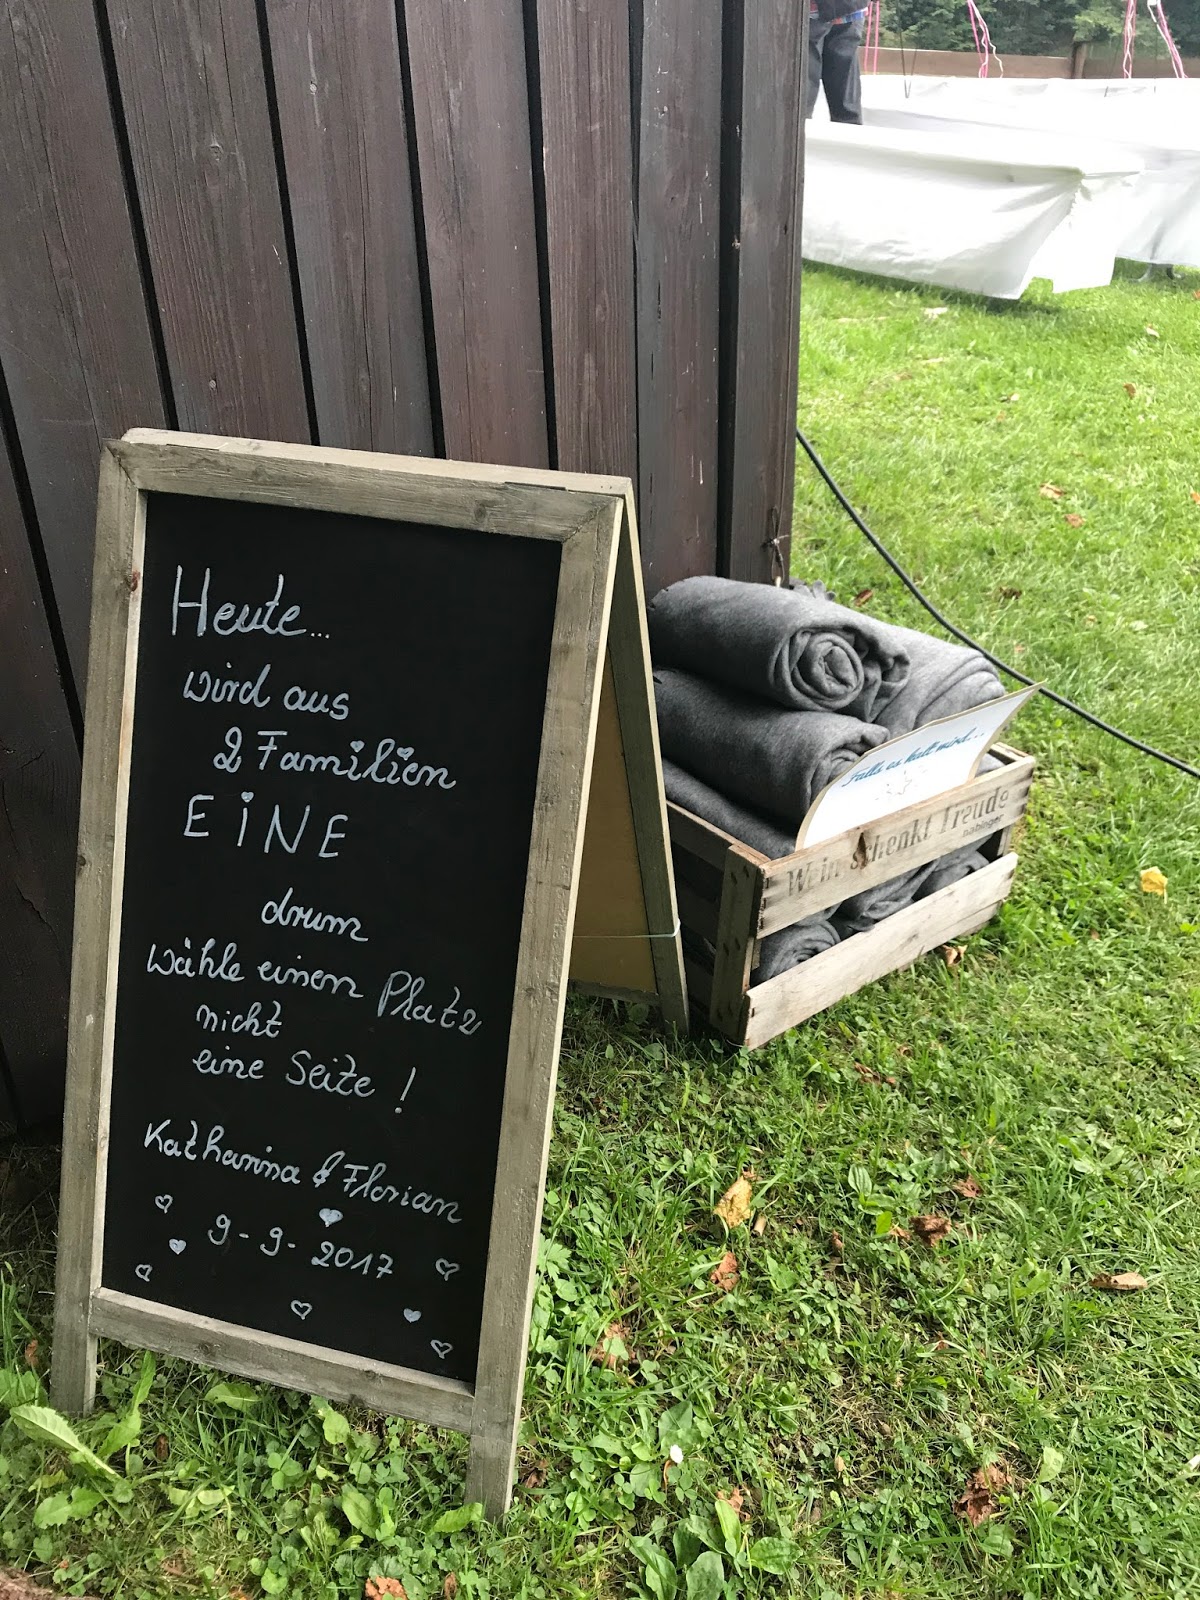 Heute...
wird aus
2 Familien
EiNE
drum
wähle einen Platz
nicht
eine Seite!
Katharina & Florian
9-9-2017
Falls es kalt wird...
Wein schenkt Freude
nabinger